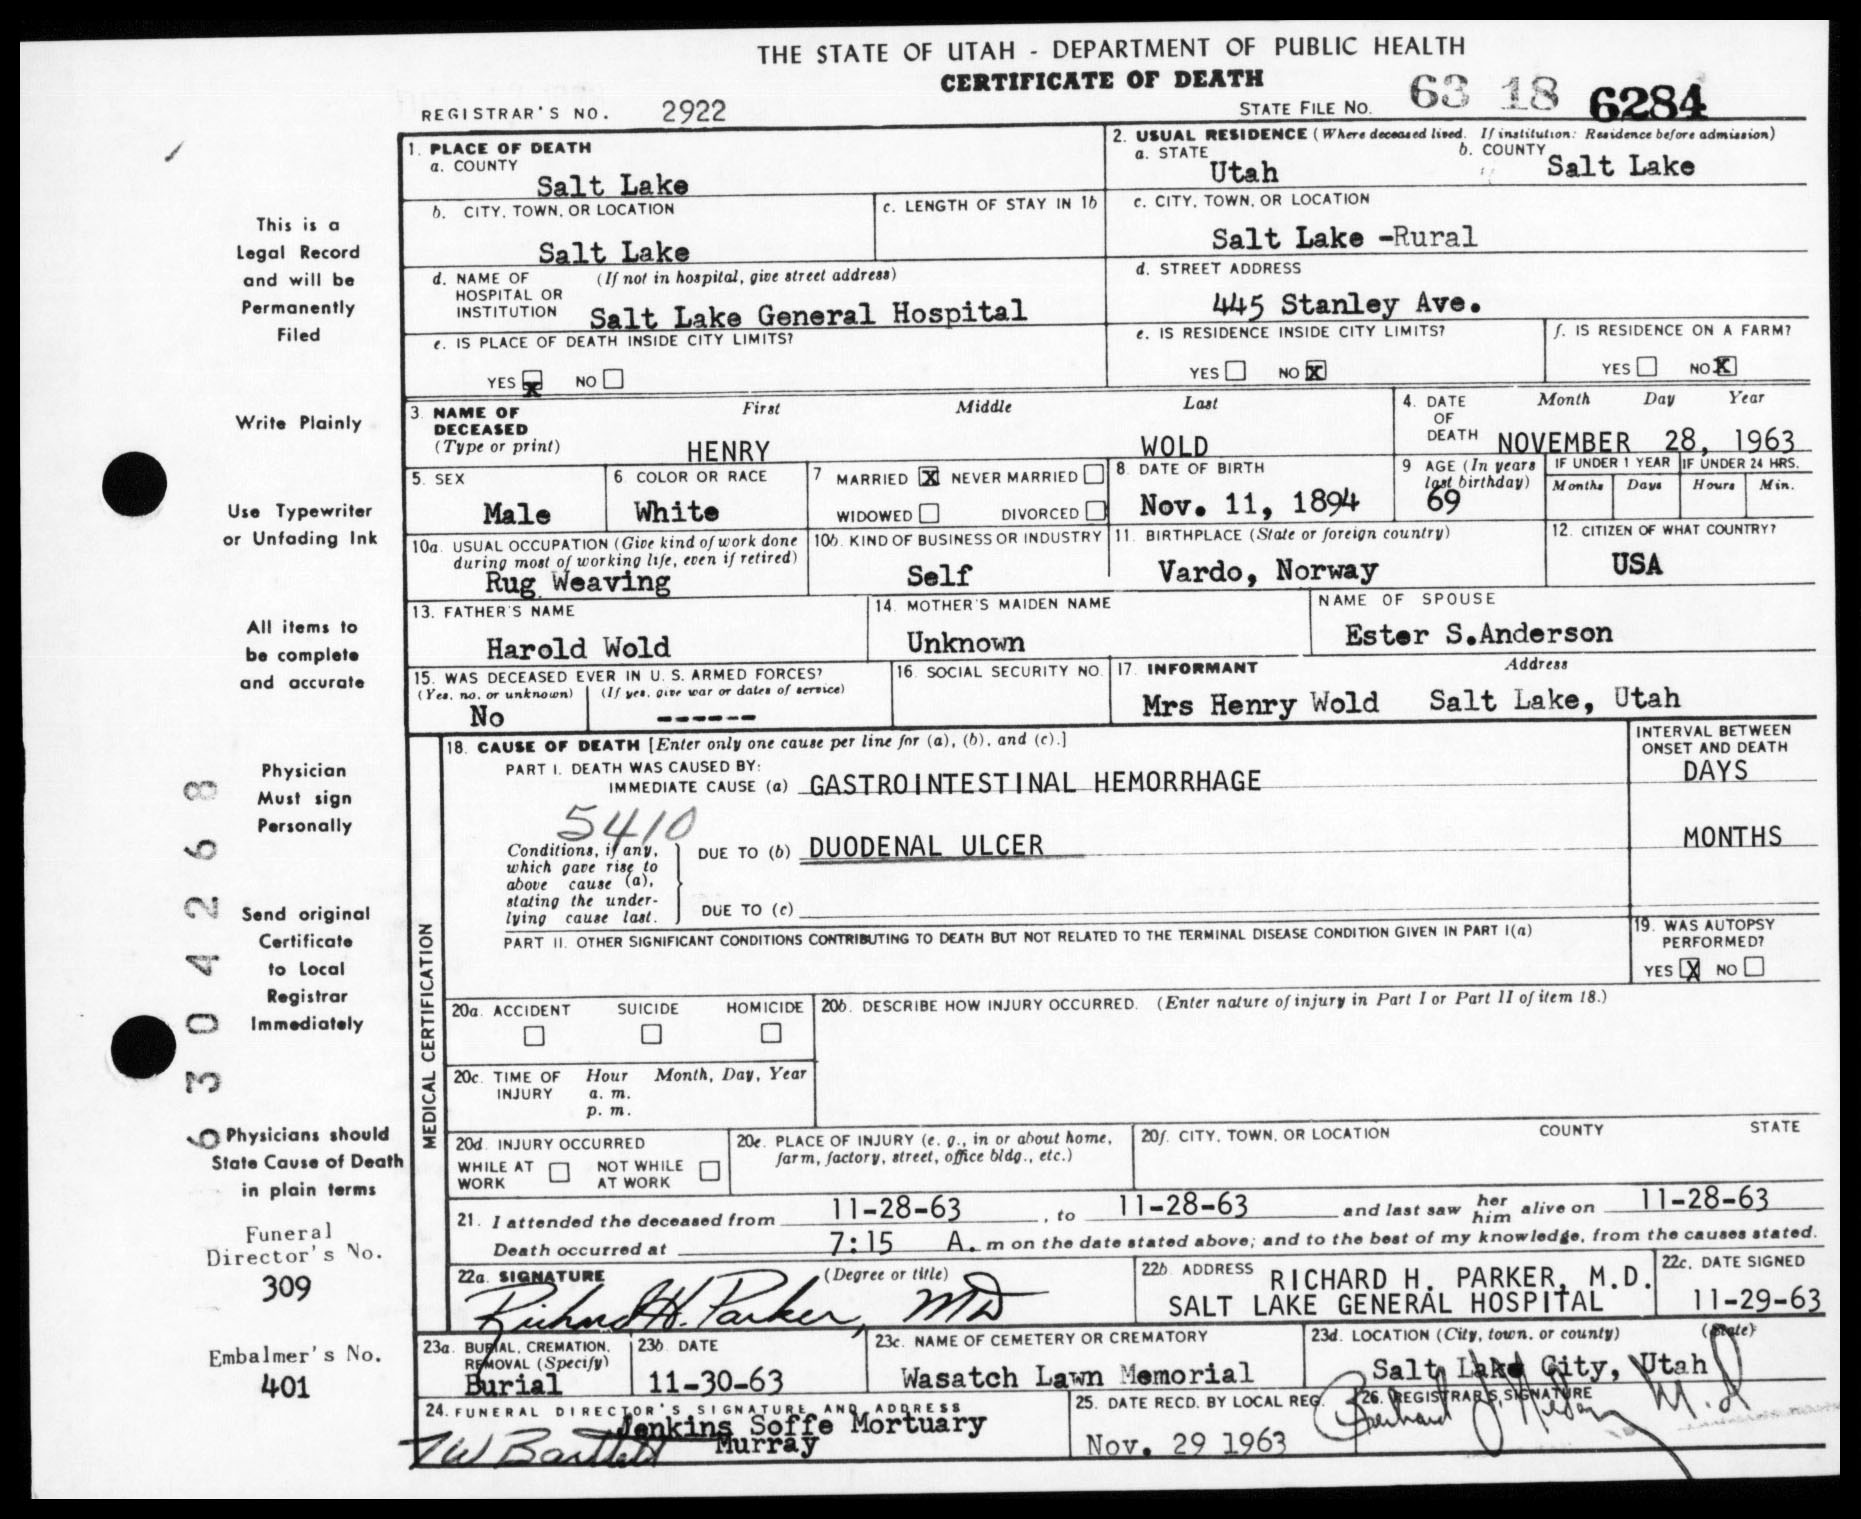 THE STATE OF UTAH - DEPARTMENT OF PUBLIC HEALTH
CERTIFICATE OF DEATH
REGISTRAR'S NO. 2922
STATE FILE NO. 63 18 6284
This is a
Legal Record
and will be
Permanently
Filed
Write Plainly
Use Typewriter
or Unfading Ink
All items to
be complete
and accurate
Physician
Must sign
Personally
Send original
Certificate
to Local
Registrar
Immediately
Physicians should
State Cause of Death
in plain terms
Funeral
Director's No.
309
Embalmer's No.
401
63042668
1. PLACE OF DEATH
a. COUNTY
Salt Lake
b. CITY, TOWN, OR LOCATION
Salt Lake
c. LENGTH OF STAY IN 1b
d. NAME OF (If not in hospital, give street address)
HOSPITAL OR
INSTITUTION Salt Lake General Hospital
e. IS PLACE OF DEATH INSIDE CITY LIMITS?
YES X NO
2. USUAL RESIDENCE (Where deceased lived. If institution: Residence before admission)
a. STATE Utah
b. COUNTY Salt Lake
c. CITY, TOWN, OR LOCATION
Salt Lake -Rural
d. STREET ADDRESS
445 Stanley Ave.
e. IS RESIDENCE INSIDE CITY LIMITS?
YES NO X
f. IS RESIDENCE ON A FARM?
YES NO X
3. NAME OF DECEASED (Type or print)
First Middle Last
HENRY WOLD
4. DATE OF DEATH
Month Day Year
NOVEMBER 28, 1963
5. SEX
Male
6. COLOR OR RACE
White
7 MARRIED X NEVER MARRIED
WIDOWED DIVORCED
8. DATE OF BIRTH
Nov. 11, 1894
9 AGE (In years last birthday)
69
IF UNDER 1 YEAR IF UNDER 24 HRS.
Months Days Hours Min.
10a. USUAL OCCUPATION (Give kind of work done
during most of working life, even if retired)
Rug Weaving
10b. KIND OF BUSINESS OR INDUSTRY
Self
11. BIRTHPLACE (State or foreign country)
Vardo, Norway
12. CITIZEN OF WHAT COUNTRY?
USA
13. FATHER'S NAME
Harold Wold
14. MOTHER'S MAIDEN NAME
Unknown
NAME OF SPOUSE
Ester S.Anderson
15. WAS DECEASED EVER IN U. S. ARMED FORCES?
(Yes, no, or unknown) (If yes, give war or dates of service)
No ------
16. SOCIAL SECURITY NO.
17. INFORMANT Address
Mrs Henry Wold Salt Lake, Utah
MEDICAL CERTIFICATION
18. CAUSE OF DEATH [Enter only one cause per line for (a), (b), and (c).]
INTERVAL BETWEEN
ONSET AND DEATH
PART I. DEATH WAS CAUSED BY:
IMMEDIATE CAUSE (a) GASTROINTESTINAL HEMORRHAGE DAYS
5410
Conditions, if any,
which gave rise to
above cause (a),
stating the under-
lying cause last.
DUE TO (b) DUODENAL ULCER MONTHS
DUE TO (c)
PART II. OTHER SIGNIFICANT CONDITIONS CONTRIBUTING TO DEATH BUT NOT RELATED TO THE TERMINAL DISEASE CONDITION GIVEN IN PART I(a)
19. WAS AUTOPSY
PERFORMED?
YES X NO
20a. ACCIDENT SUICIDE HOMICIDE
20b. DESCRIBE HOW INJURY OCCURRED. (Enter nature of injury in Part I or Part II of item 18.)
20c. TIME OF INJURY
Hour Month, Day, Year
a. m.
p. m.
20d. INJURY OCCURRED
WHILE AT WORK NOT WHILE AT WORK
20e. PLACE OF INJURY (e. g., in or about home,
farm, factory, street, office bldg., etc.)
20f. CITY, TOWN, OR LOCATION COUNTY STATE
21. I attended the deceased from 11-28-63, to 11-28-63 and last saw her him alive on 11-28-63
Death occurred at 7:15 A. m on the date stated above; and to the best of my knowledge, from the causes stated.
22a. SIGNATURE (Degree or title)
Richard H. Parker, MD
22b. ADDRESS RICHARD H. PARKER, M.D.
SALT LAKE GENERAL HOSPITAL
22c. DATE SIGNED
11-29-63
23a. BURIAL, CREMATION,
REMOVAL (Specify)
Burial
23b. DATE
11-30-63
23c. NAME OF CEMETERY OR CREMATORY
Wasatch Lawn Memorial
23d. LOCATION (City, town, or county) (State)
Salt Lake City, Utah
24. FUNERAL DIRECTOR'S SIGNATURE AND ADDRESS
Jenkins Soffe Mortuary
Murray
TW Bartlett
25. DATE RECD. BY LOCAL REG.
Nov. 29 1963
26. REGISTRAR'S SIGNATURE
M.D